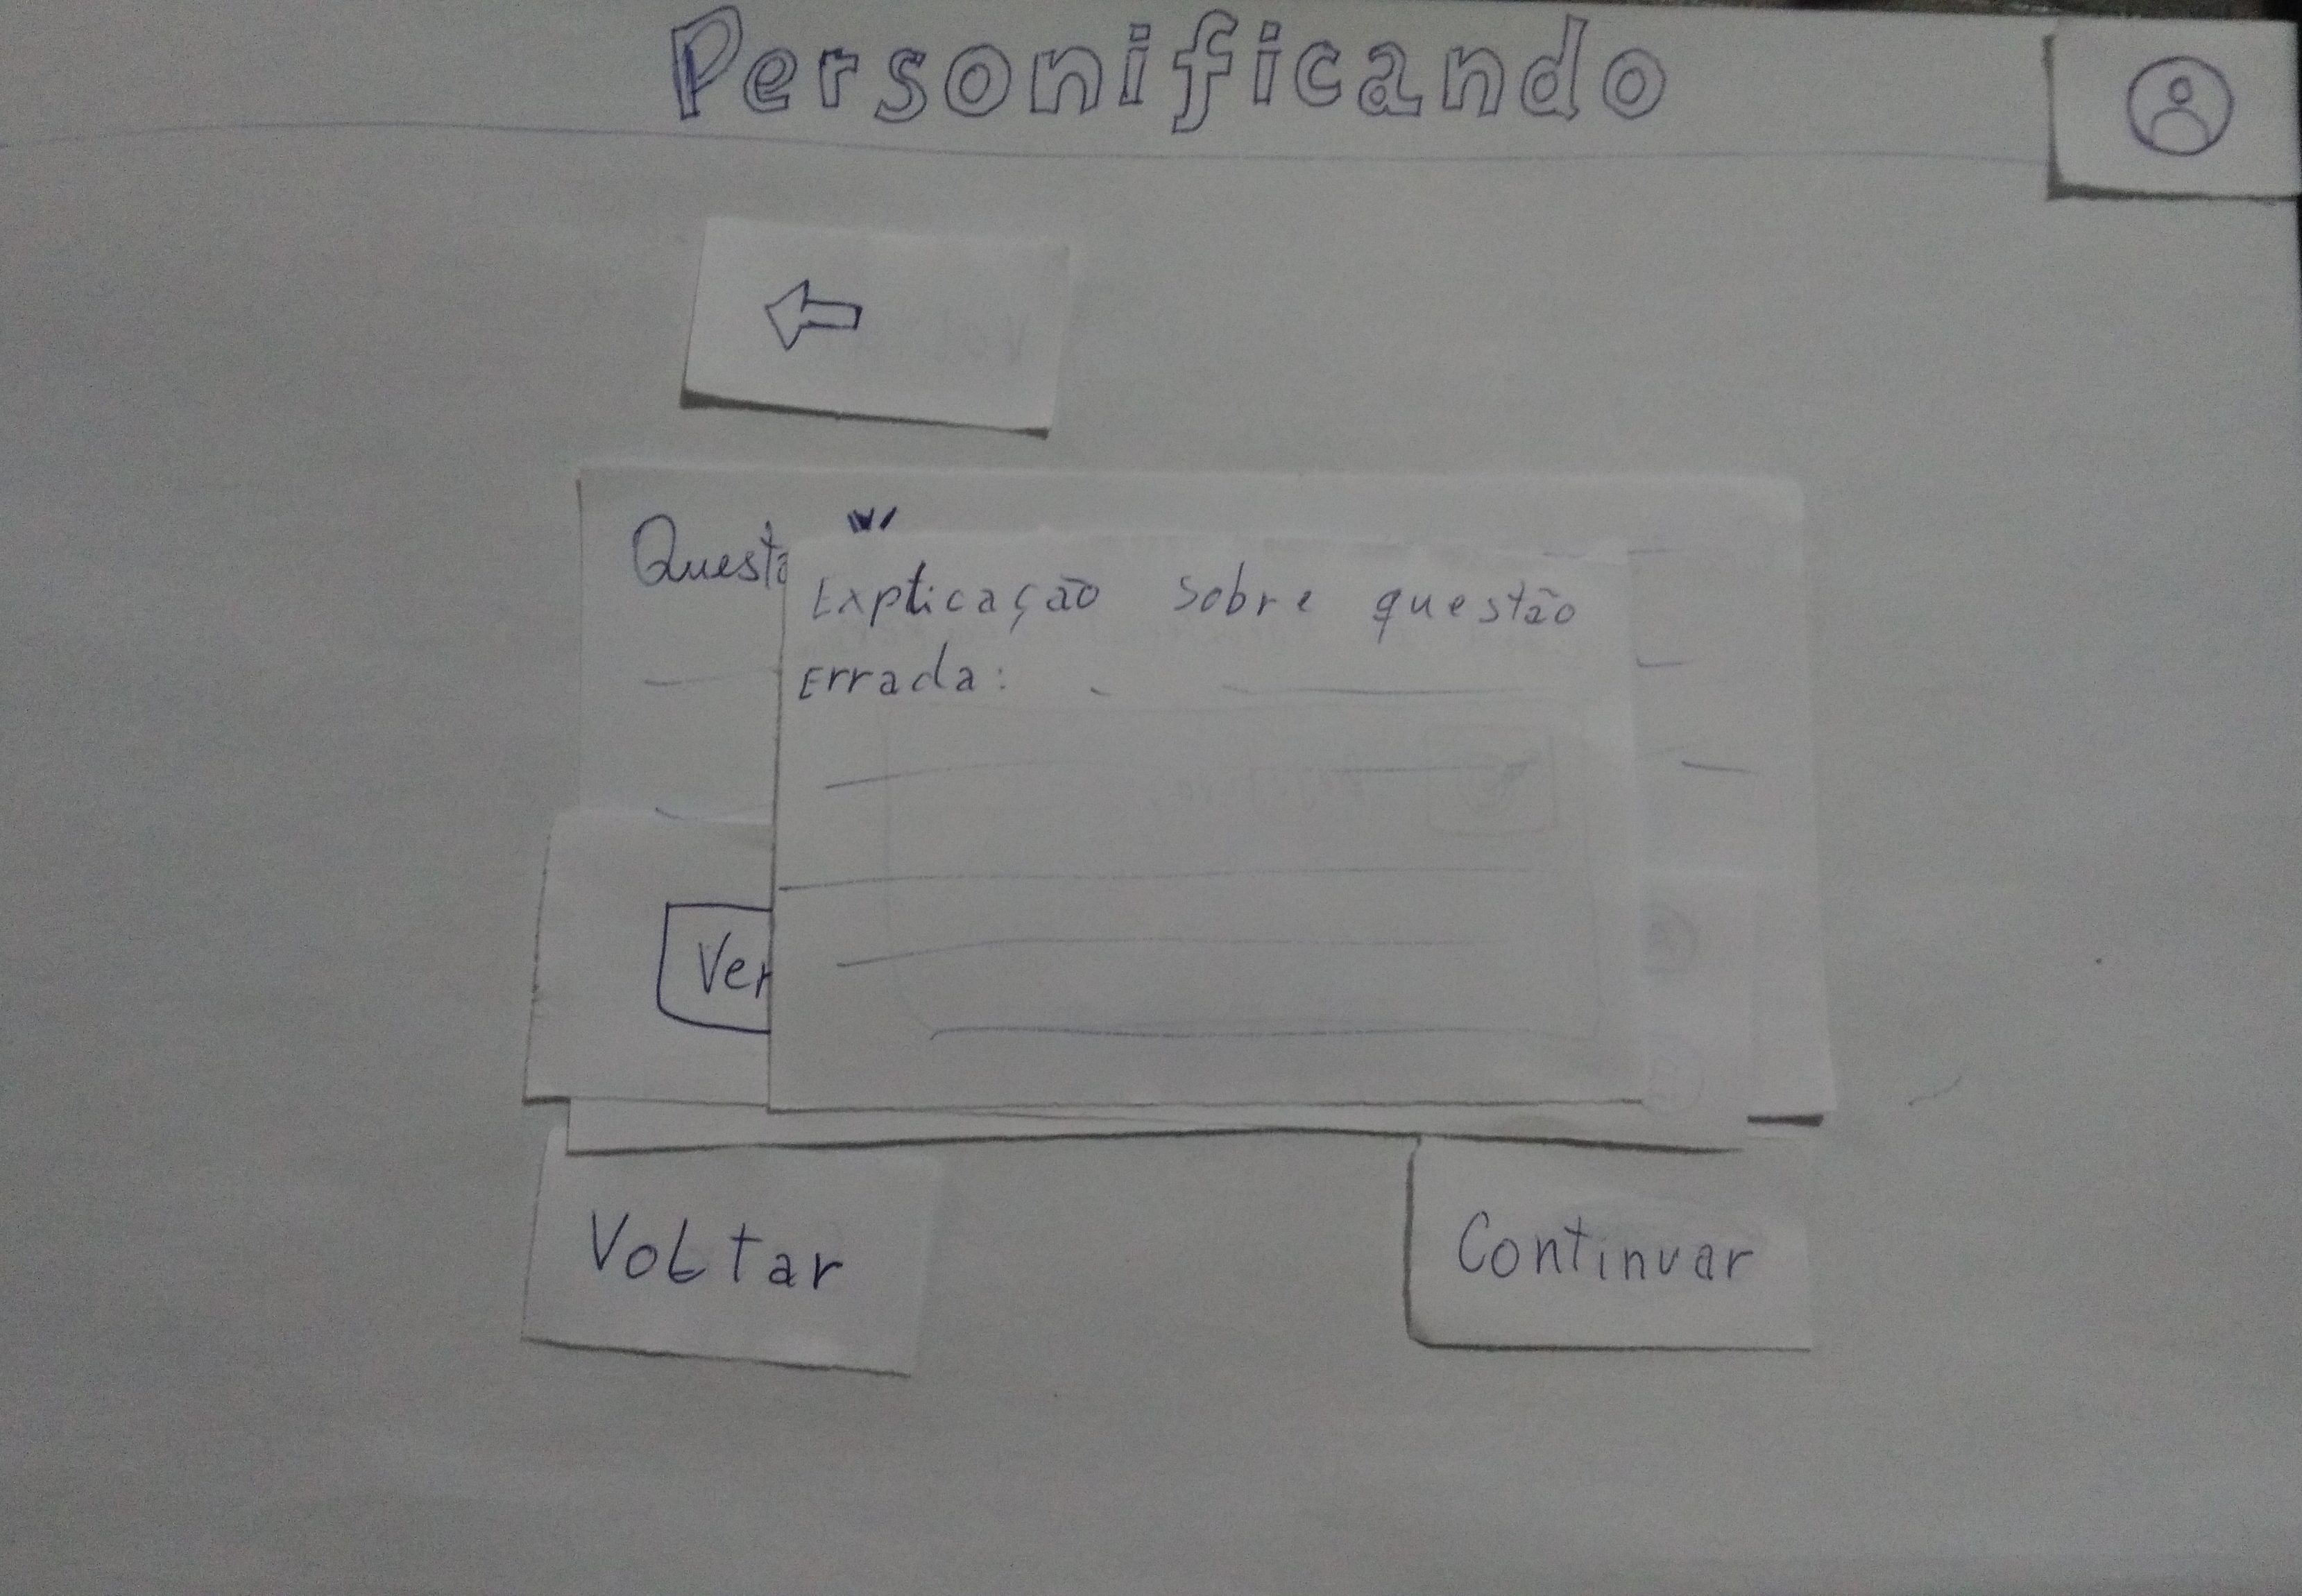 Personificando
Questã
Explicação sobre questão
Errada:
Ver
Voltar
Continuar